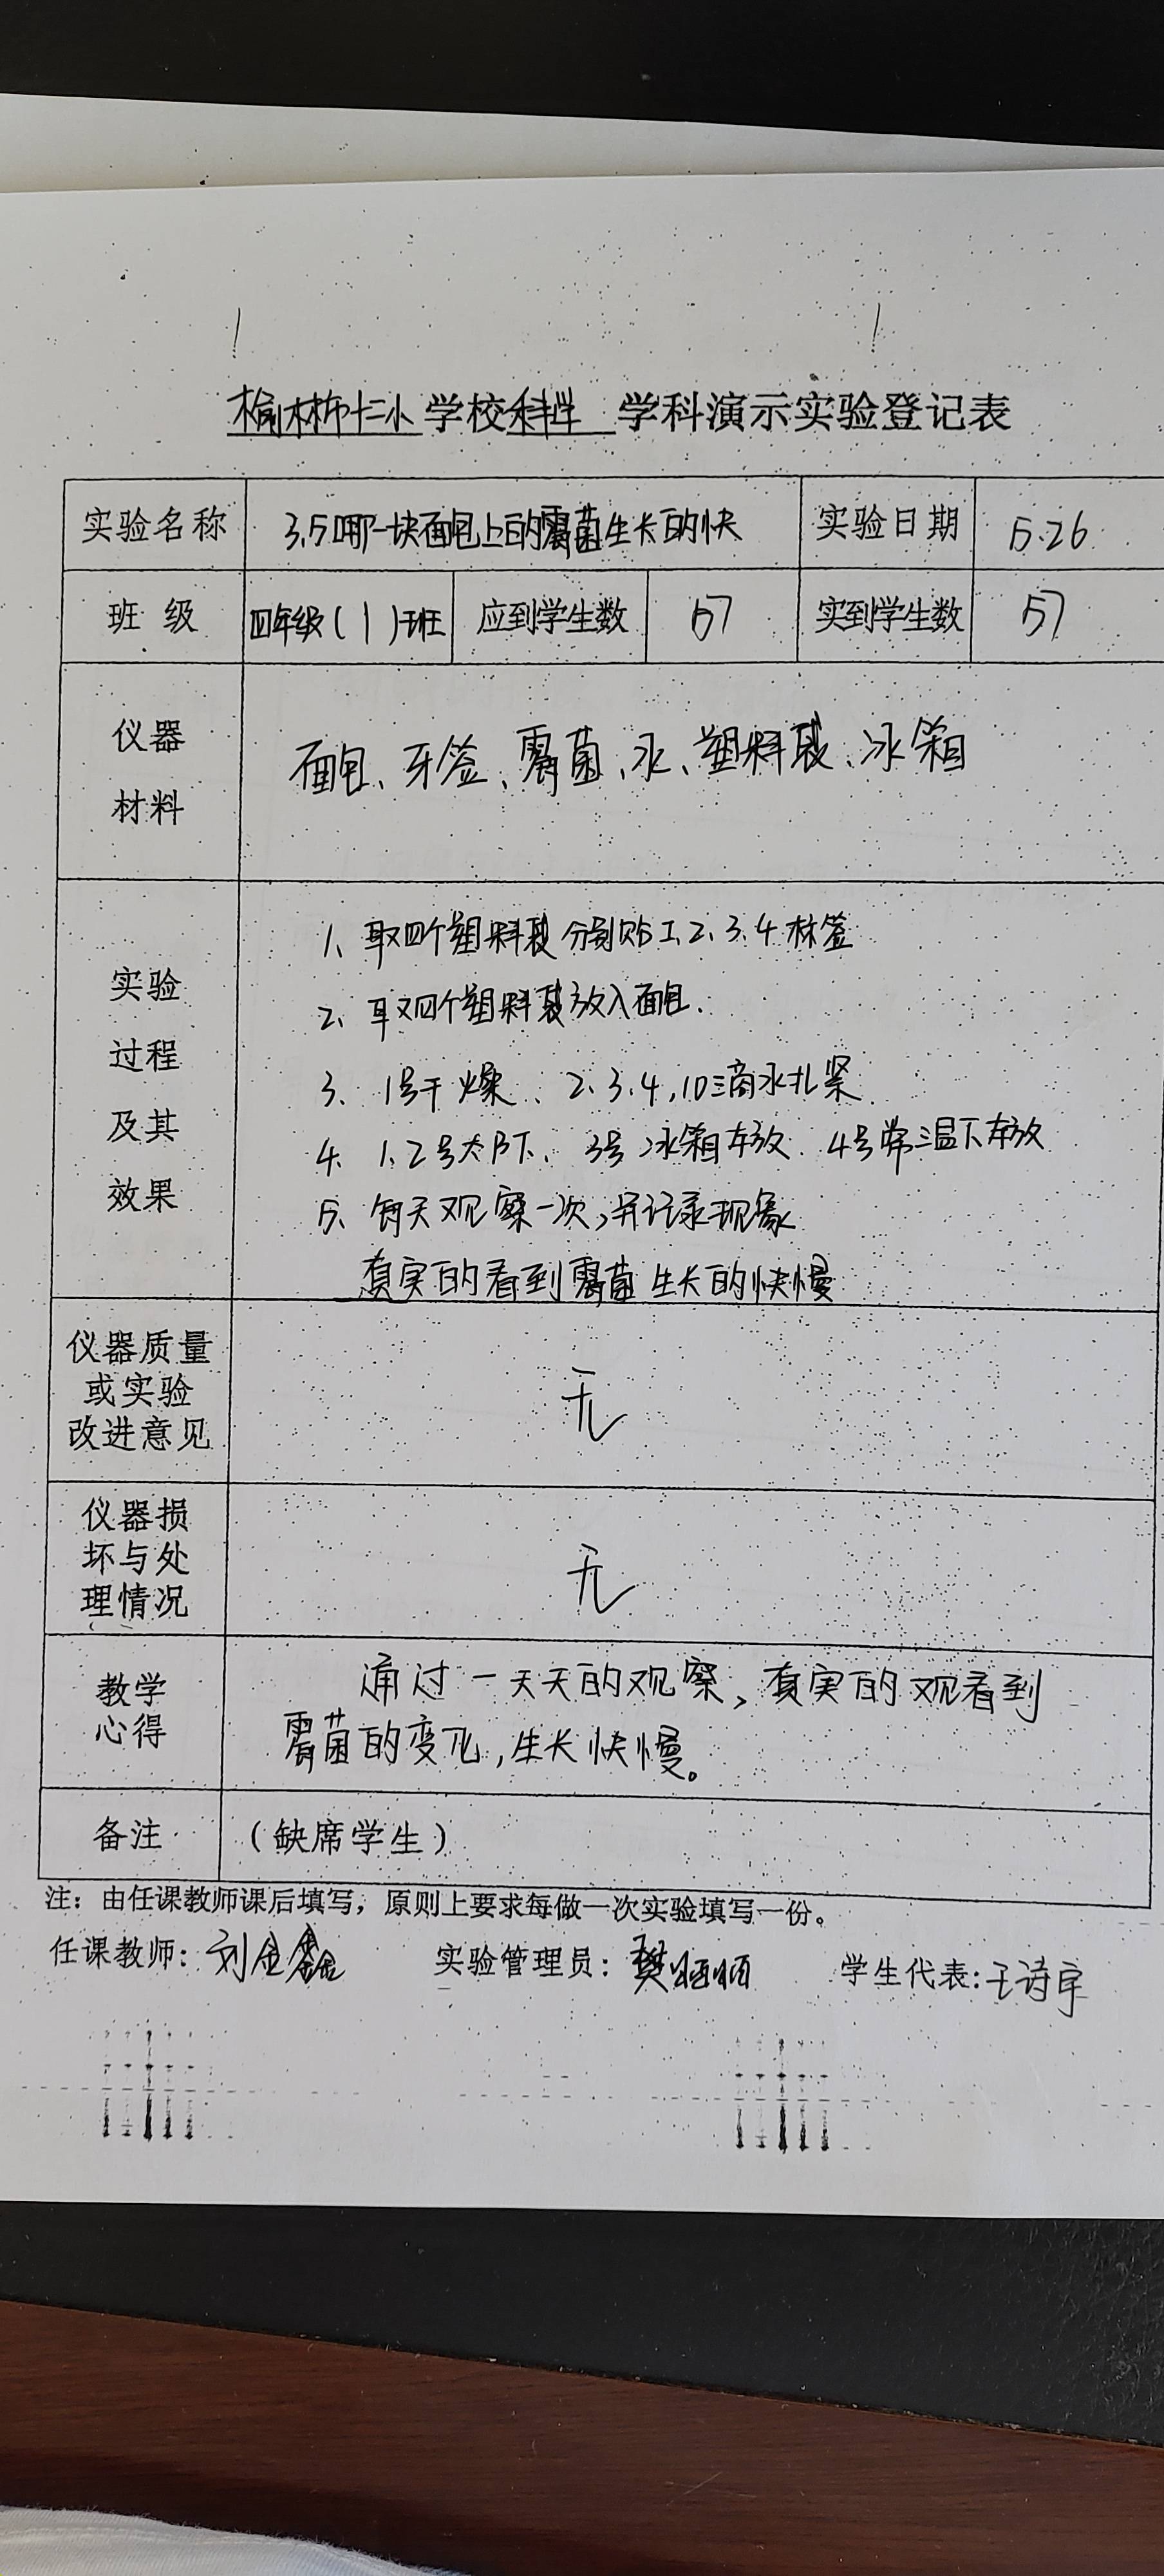 榆林市十二小学校科学学科演示实验登记表
实验名称 3.5哪一块面包上的霉菌生长的快 实验日期 5.26
班 级 四年级(1)班 应到学生数 57 实到学生数 57
仪器
材料
面包、牙签、霉菌、水、塑料袋、冰箱
实验
过程
及其
效果
1、取四个塑料袋分别贴1、2、3、4标签
2、取四个塑料袋放入面包.
3、1号干燥、2.3.4,10滴水扎紧
4、1、2号太阳下、3号冰箱存放、4号常温下存放
5、每天观察一次,并记录现象
真实的看到霉菌生长的快慢
仪器质量
或实验
改进意见
无
仪器损
坏与处
理情况
无
教学
心得
通过一天天的观察,真实的观看到
霉菌的变化,生长快慢。
备注 (缺席学生)
注:由任课教师课后填写,原则上要求每做一次实验填写一份。
任课教师:刘金鑫 实验管理员:樊 学生代表:王诗宇